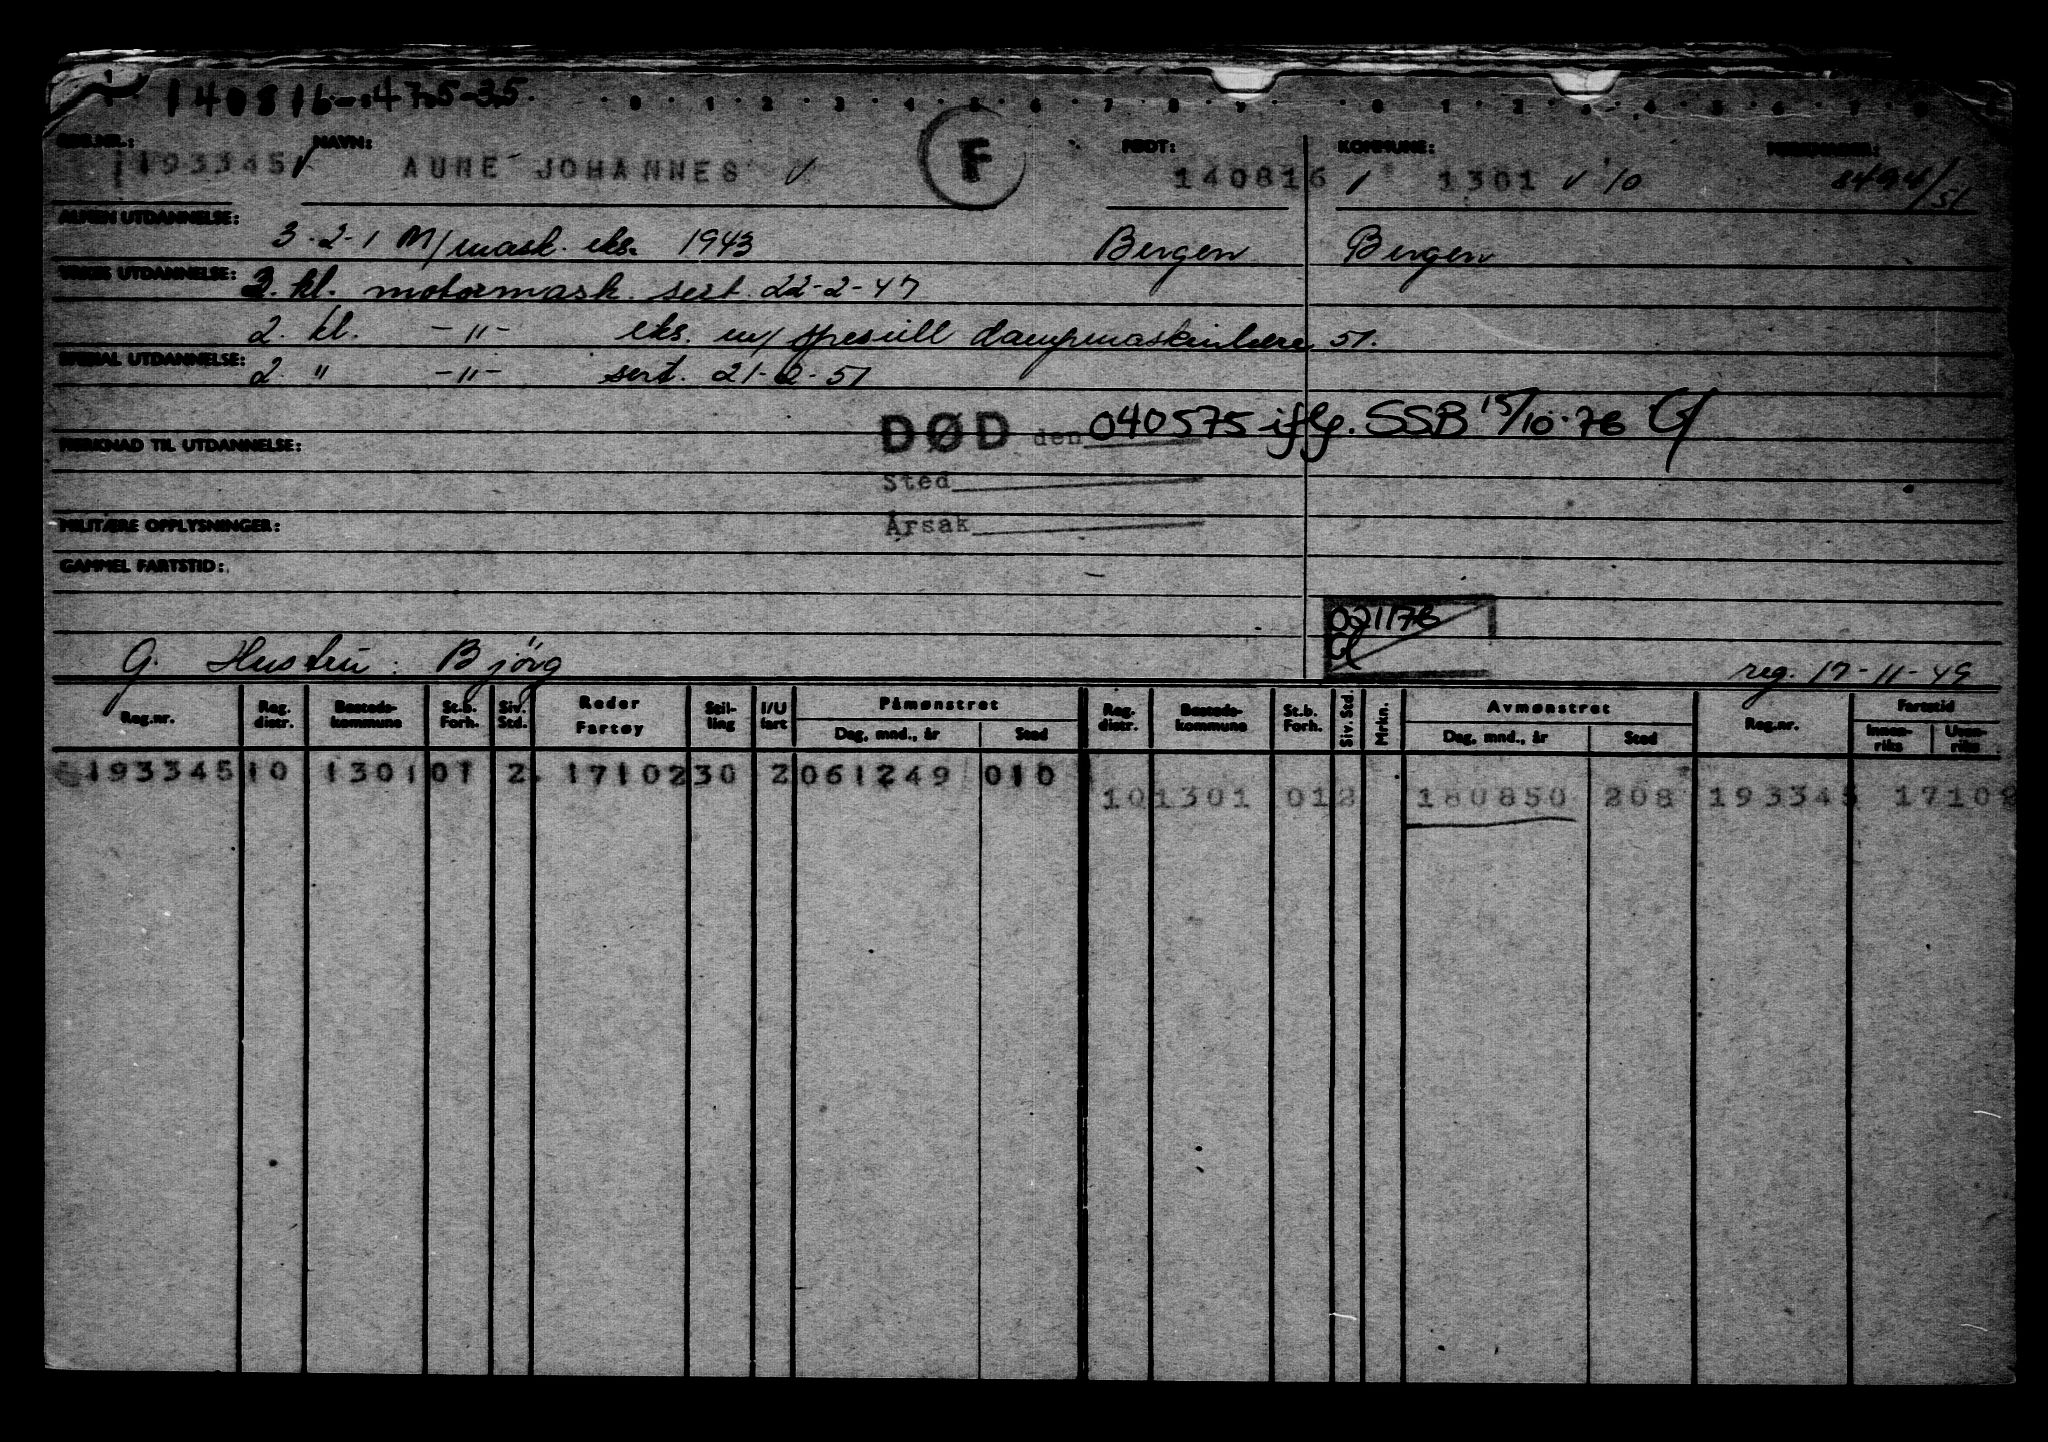 140816-.475-35.
REG.NR.: NAVN: F FØDT: KOMMUNE:
193345 AUNE JOHANNES 140816 1301 10 8494/51
ALMEN UTDANNELSE: 3-2-1 M/mask. eks. 1943 Bergen Bergen
YRKES UTDANNELSE: 3. kl. motormask. sert. 22-2-47
2. kl. -"- eks. m/ spesiell dampmaskinlære 51.
SPESIAL UTDANNELSE: 2 " -"- sert. 21-2-51
DØD den 040575 iflg. SSB 15/10-76
MERKNAD TIL UTDANNELSE:
Sted
MILITÆRE OPPLYSNINGER: Årsak
GAMMEL FARTSTID:
021176
G. Hustru: Bjørg reg. 17-11-49
Reg.nr. Reg. distr. Bosteds-kommune St.b. Forh. Siv. Std. Reder Fartøy Stil-ling I/U fart Påmønstret Dag, mnd., år Sted Reg. distr. Bosteds-kommune St.b. Forh. Siv. Std. Mrkn. Avmønstret Dag, mnd., år Sted Reg.nr. Fartstid Innen-riks Uten-riks
193345 10 1301 01 2 17102 30 2 061249 010
10 1301 01 2 180850 208 193345 17102